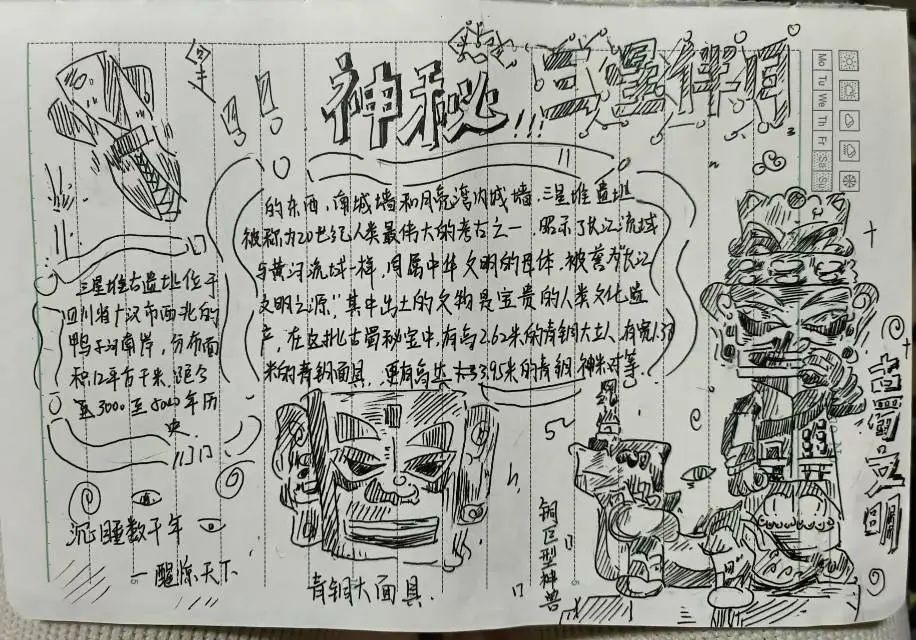 神秘!!!三星堆
Mo Tu We Th Fr Sa Su
的东西、南城墙和月亮湾内城墙，三星堆遗址
被称为20世纪人类最伟大的考古之一 昭示了长江流域
与黄河流域一样，同属中华文明的母体，被誉为长江
文明之源"，其中出土的文物是宝贵的人类文化遗
产，在这批古蜀秘宝中，有高2.62米的青铜大立人，有宽1.38
米的青铜面具，更有高达 3.95米的青铜神树等
三星堆古遗址位于
四川省广汉市西北的
鸭子河南岸，分布面
积12平方千米，距今
至3000至5000年历
史
沉睡数千年
一醒惊天下
青铜大面具.
铜巨型神兽
古蜀文明